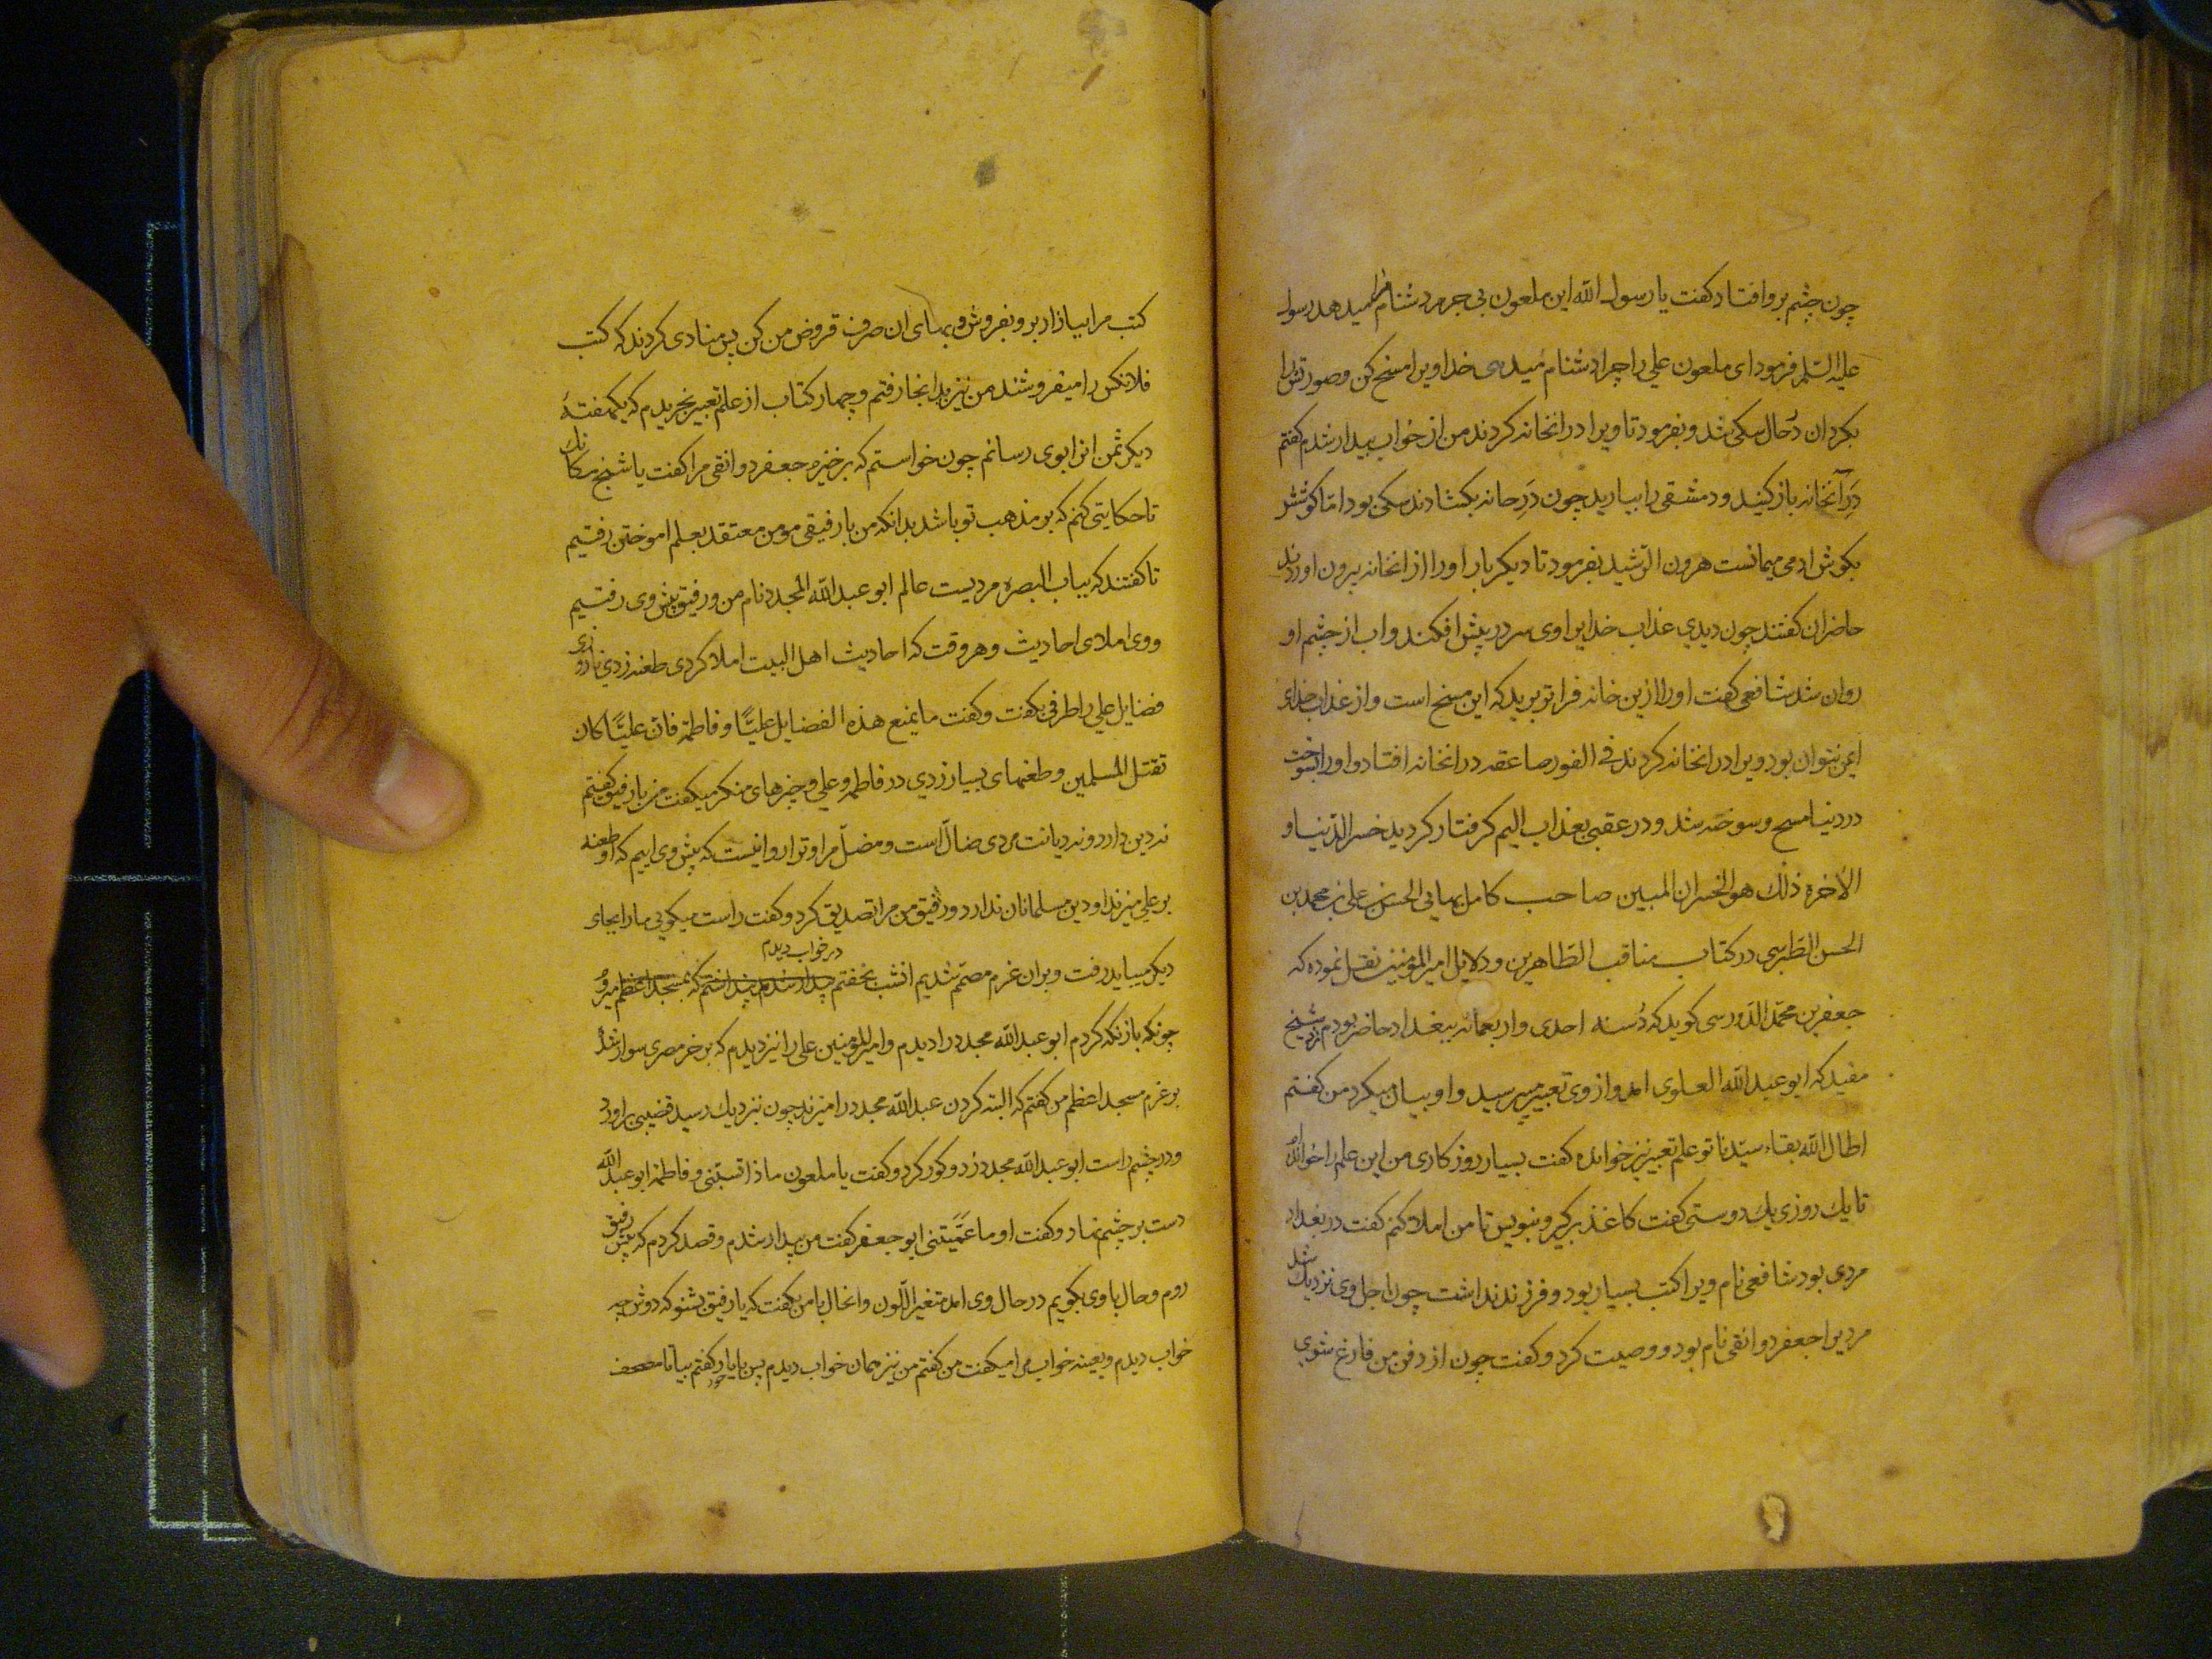 چون چشم بر وافتاد کفت یا رسول الله این ملعون بی جرم دشنام مرا میدهد رسول
علیه السلم فرمود ای ملعون علی را چرا دشنام میدهی خدا ویرا مسخ کن و صورتش را
بکردان در حال سکی شد و بفرمود تا ویرا در انخانه کردند من از خواب بیدار شدم کفتم
در آنخانه باز کنید و دمشقی را بیارید چون در خانه بکشادند سکی بود اما کوشش
بکوش ادمی میمانست هرون الرشید بفرمود تا دیکر بار اورا از انخانه بیرون اوردند
حاضران کفتند چون دیدی عذاب خدایرا وی سر در پیش افکند و اب از چشم او
روان شد شافعی کفت اورا ازین خانه فراتر برید که این مسخ است و از عذاب خدای
ایمن نتوان بود ویرا در انخانه کردند فی الفور صاعقه در انخانه افتاد و اورا بسوخت
در دنیا مسخ و سوخته شد و در عقبی بعذاب الیم کرفتار کردید خسر الدنیا و
الاخرة ذلك هو الخسران المبین صاحب کامل بهائی الحسن بن علی بن محمد بن
الحسن الطبرسی در کتاب مناقب الطاهرین و دلایل امیر المؤمنین نقل نموده که
جعفر بن محمد الدورسی کوید که در سنه احدی و اربعمائه ببغداد حاضر بودم نزد شیخ
مفید که ابو عبد الله العلوی امد و از وی تعبیر میپرسید و او بیان میکرد من کفتم
اطال الله بقاء سیدنا تو علم تعبیر نیز خوانده کفت بسیار روزکاری من این علم را خوانده‌ام
تا یك روزی یك دوستی کفت کاغذ برکیر و بنویس تا من املا کنم کفت در بغداد
مردی بود شافعی نام ویرا کتب بسیار بود و فرزند نداشت چون اجل وی نزدیك شد
مردیرا جعفر دوانقی نام بود و وصیت کرد و کفت چون از دفن من فارغ شوی
کتب مرا ببازار بر و بفروش و بهای ان صرف قروض من کن پس منادی کردند که کتب
فلانکس را میفروشند من نیز بدانجا رفتم و چهار کتاب از علم تعبیر بخریدم که یکهفتهٔ
دیکر ثمن انرا بوی رسانم چون خواستم که برخیزم جعفر دوانقی مرا کفت یا شیخ مکانك
تا حکایتی کنم که بر مذهب تو باشد بدانکه من با رفیقی مومن معتقد بعلم اموختن رفتیم
تا کفتند که بباب البصره مردیست عالم ابو عبد الله المجدد نام من و رفیق پیش وی رفتیم
و وی املای احادیث و هر وقت که احادیث اهل البیت املا کردی طعنه زدی تا روزی
فضایل علی را طرفی بکفت و کفت ما ینفع هذه الفضایل علیًا و فاطمة فان علیًا کان
تقتل المسلمین و طعنهای بسیار زدی در فاطمه و علی و چیزهای منکر میکفت من با رفیق کفتم
نه دین دارد و نه دیانت مردی ضال است و مضل مرا و ترا روا نیست که پیش وی اییم که او طعنه
بر علی میزند او دین مسلمانان ندارد و رفیق من مرا تصدیق کرد و کفت راست میکویی ما را بجای
دیکر میباید رفت و بران عزم مصمم شدیم انشب بخفتم در خواب دیدم که بمسجد اعظم میرو
چونکه باز نکه کردم ابو عبد الله مجدد را دیدم و امیر المؤمنین علی را نیز دیدم که بر خر مصری سوار شد
بر عزم مسجد اعظم من کفتم که البته کردن عبد الله مجدد را میزند چون نزدیك رسید قضیبی براورد
و در چشم راست ابو عبد الله مجدد زد و کور کرد و کفت یا ملعون ماذا تسبنی و فاطمة ابو عبد الله
دست بر چشم نهاد و کفت او ما عمیتنی ابو جعفر کفت من بیدار شدم و قصد کردم که پیش رفیق
روم و حال باوی بکویم در حال وی امد متغیر اللون و انحال با من بکفت که یا رفیق بشنو که دوش چه
خواب دیدم و بعینه خواب مرا میکفت من کفتم من نیز همان خواب دیدم پس با یار خود کفتم بیا تا مصحف